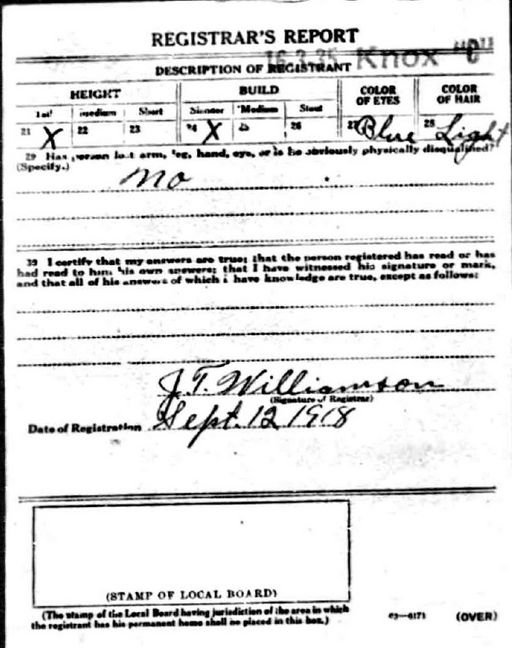 REGISTRAR'S REPORT
16-3-25 Knox "C"
DESCRIPTION OF REGISTRANT
HEIGHT BUILD COLOR OF EYES COLOR OF HAIR
Tall Medium Short Slender Medium Stout
21 X 22 23 24 X 25 26 27 Blue 28 Light
29 Has person lost arm, leg, hand, eye, or is he obviously physically disqualified?
(Specify.)
no
30 I certify that my answers are true; that the person registered has read or has
had read to him his own answers; that I have witnessed his signature or mark,
and that all of his answers of which I have knowledge are true, except as follows:
J.T. Williamson
(Signature of Registrar)
Date of Registration Sept. 12 1918
(STAMP OF LOCAL BOARD)
(The stamp of the Local Board having jurisdiction of the area in which
the registrant has his permanent home shall be placed in this box.)
03—6171 (OVER)